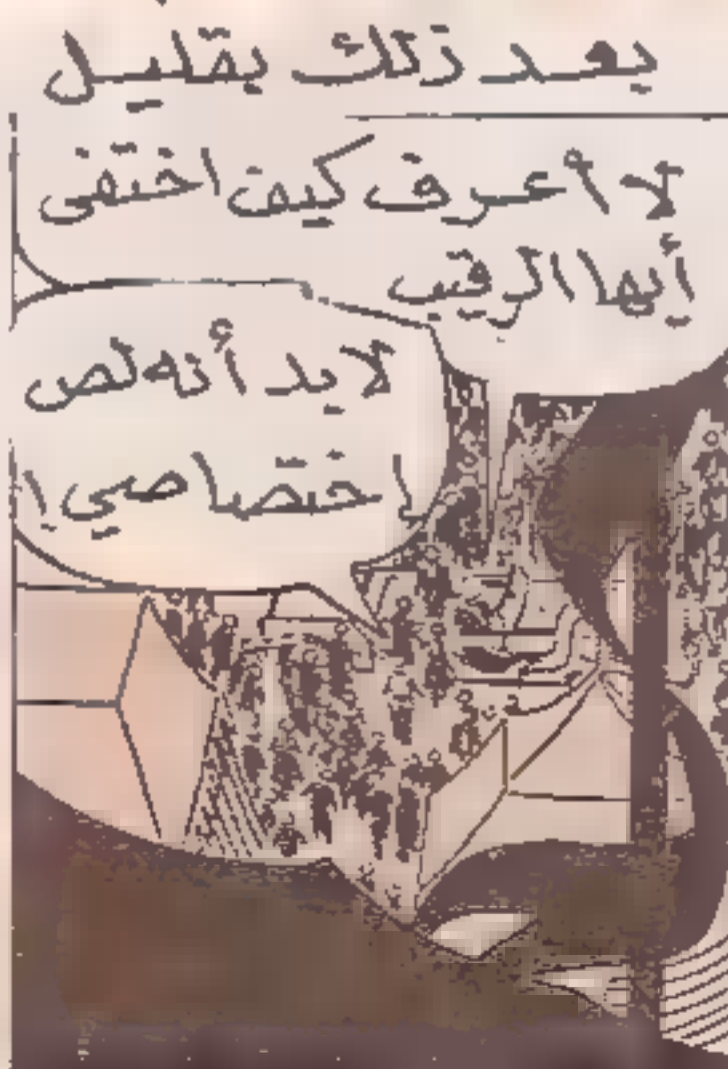 بعد ذلك بقليل
لا أعرف كيف اختفى
أيها الرقيب
لابد أنه لص
اختصاصي!